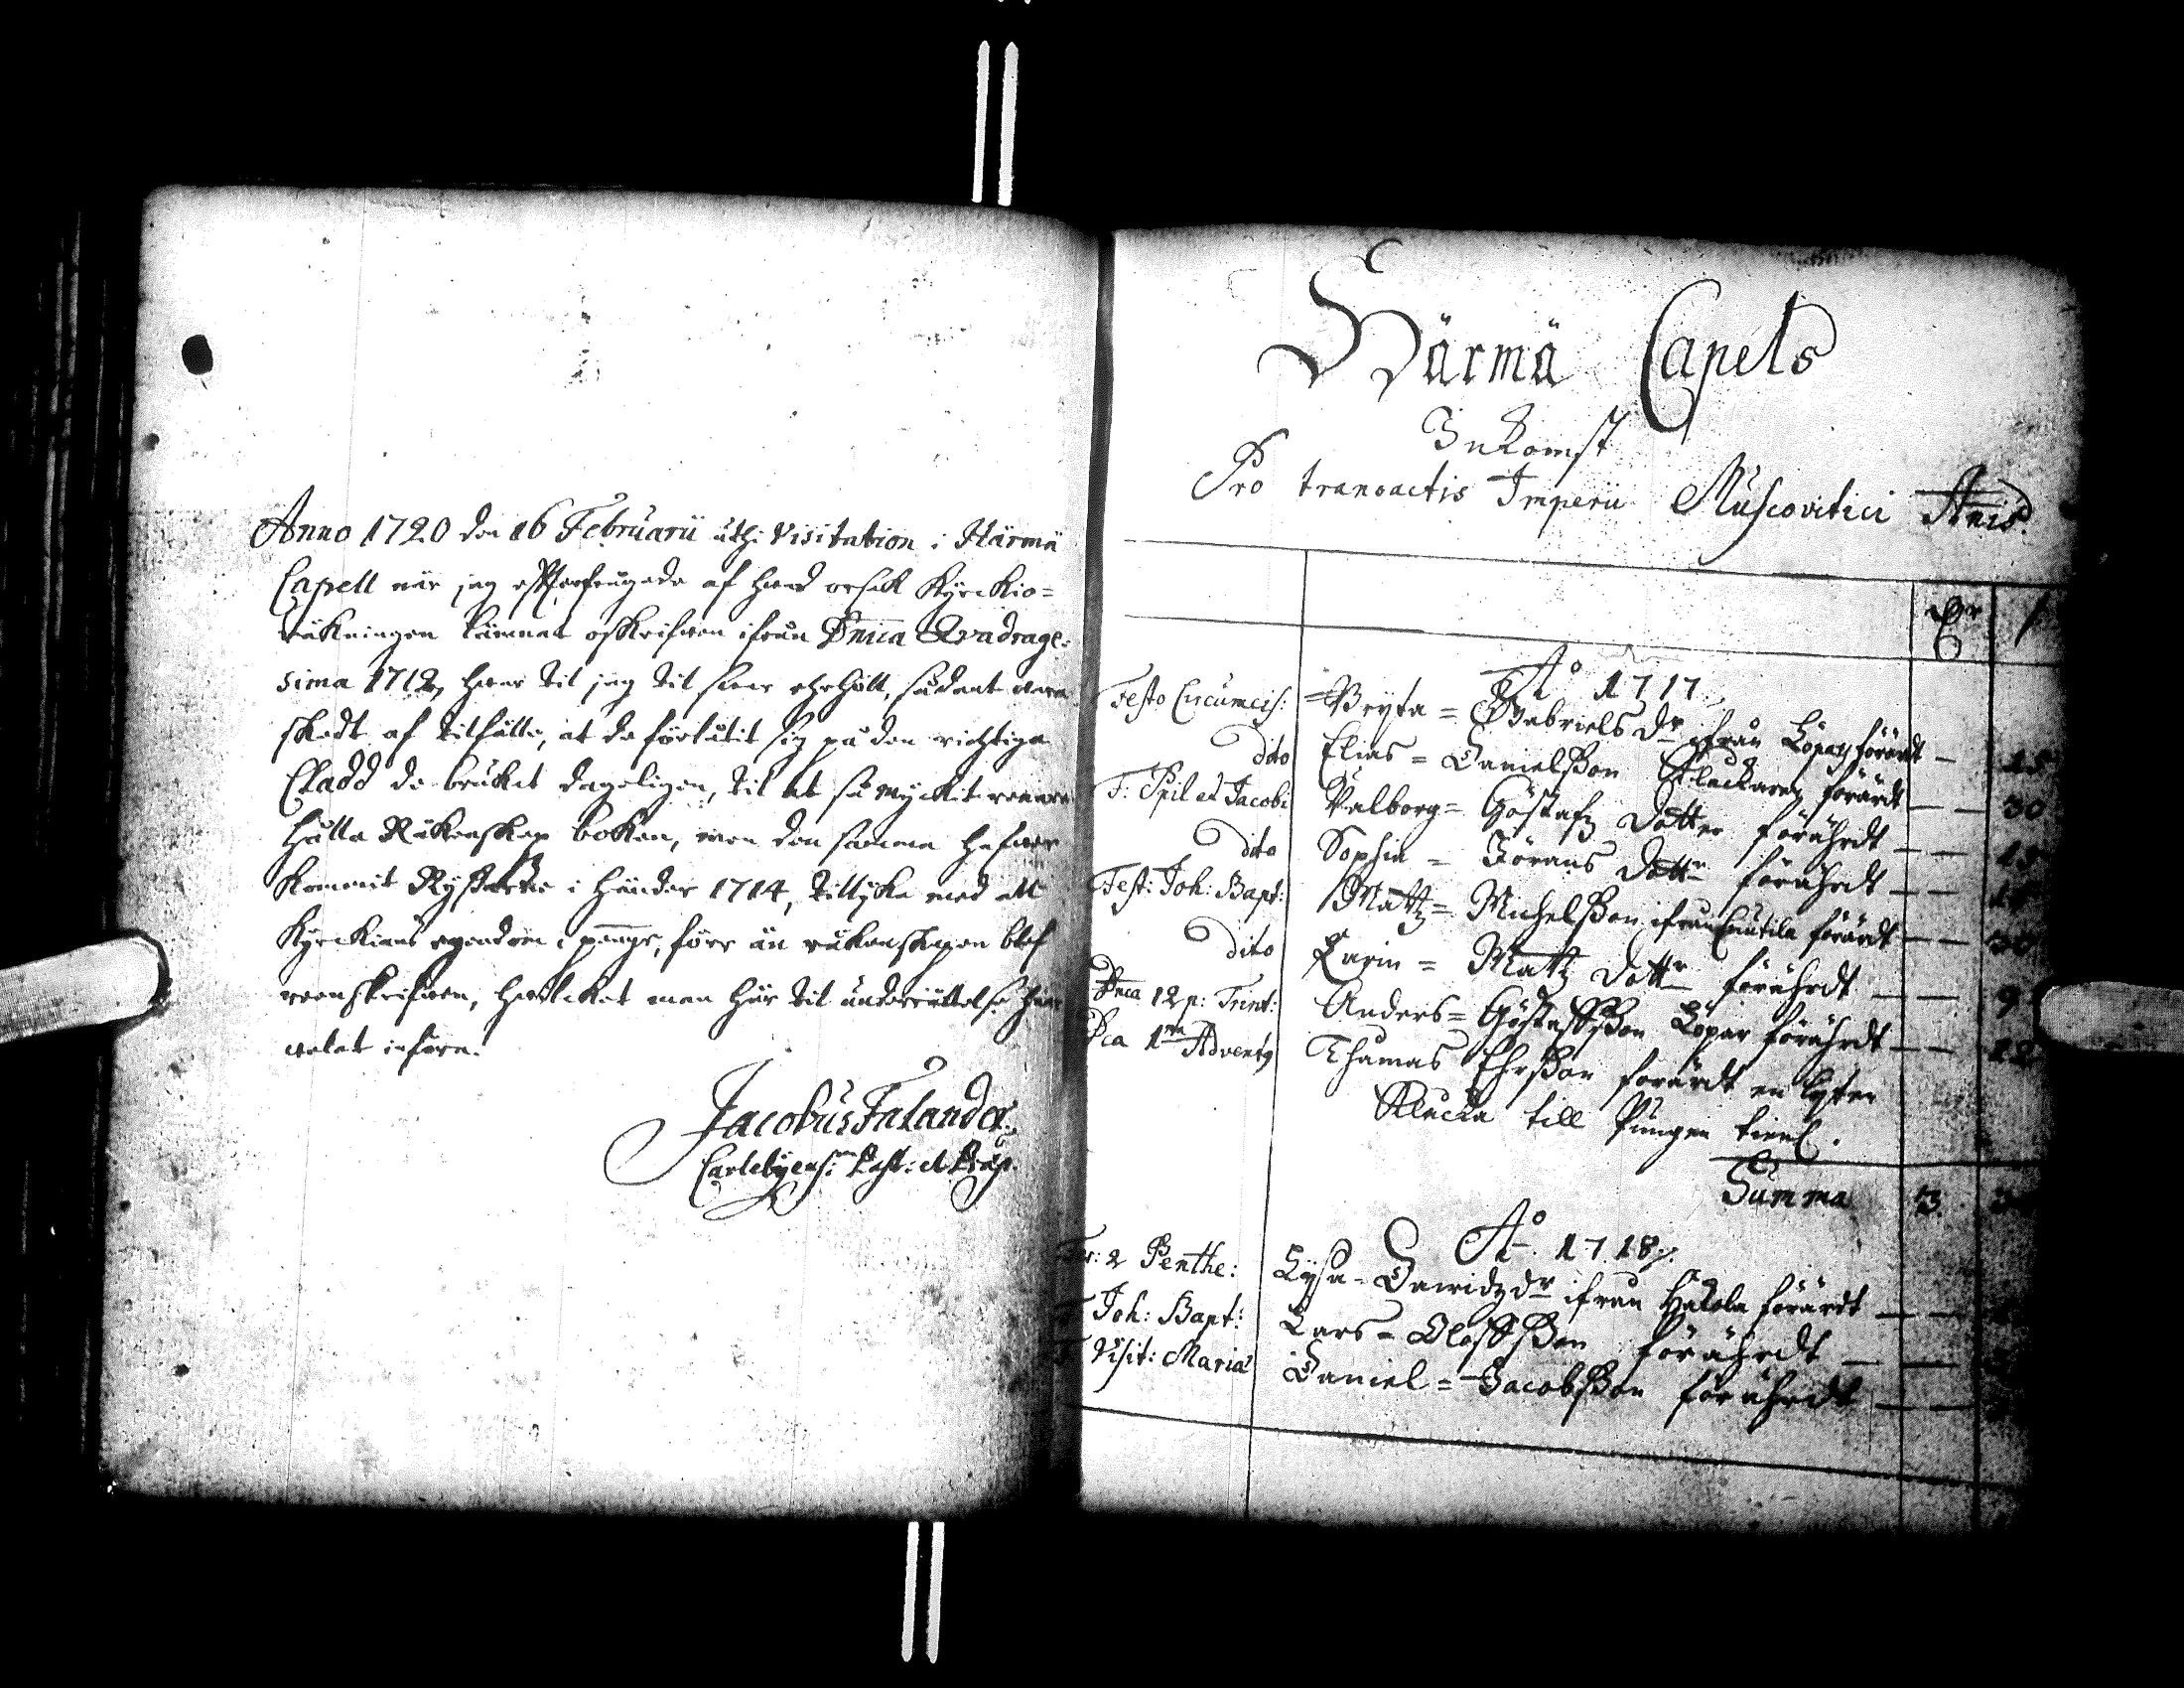 Anno 1720 den 16 Februarii uthi Visitation i Härmä
Capell när jag effterfrågade af hwad orsak Kyrckio=
räkningen lämnat oskrifwen ifrån Dnica Qvadrage:
sima 1712, hwar til jag til swar ehrhölt, sådant wara
skedt af tilfälle, at de förlåtit sig på den richtiga
Cladd de brukat dageligen, til at så myckit renare
hålla Räkenskap boken, men den samma hafwer
kommit Ryssarne i händer 1714, tillijka med all
Kyrckians egendom i pnngr, förr än räkenskapen blef
reenskrifwen, hwilcket man här til underrättelse här
welat införa.
Jacobus Falander
Carlebyens: Past: et Præp.
Härmä Capels
Inkomst
Pro transactis Imperii Muscovitici Anis
Dr
Ao 1717
Festo Circumcis: = Bryta = Gabriels dr ifrån Löpar förärdt — 15
dito Elias = Danielsson Kluckaren förärdt — — 30
F: Phil et Jacobi Valborg = Göstafz dotter förährdt — — 15
dito Sophia = Jörans dottr förährdt — —
Fest: Joh: Bapt: Mattz = Michelsson ifrån Luutila förärdt — — 30
dito Karin = Matz dottr förährdt — — 9
Dnica 12 p: Trint: Anders = Göstaffsson Löpar förährdt — —
Dca 1ma Advents Thomas Ehrsson förärdt en lijten
Klucka till Pungen
Summa 3
Ao 1718
Fer: 2 Penthe: Lijsa = Dawidz dr ifrån Hakola förärdt — —
F Joh: Bapt: Lars = Oloffsson förährdt — —
F Visit: Mariæ Daniel = Jacobsson förährdt — —